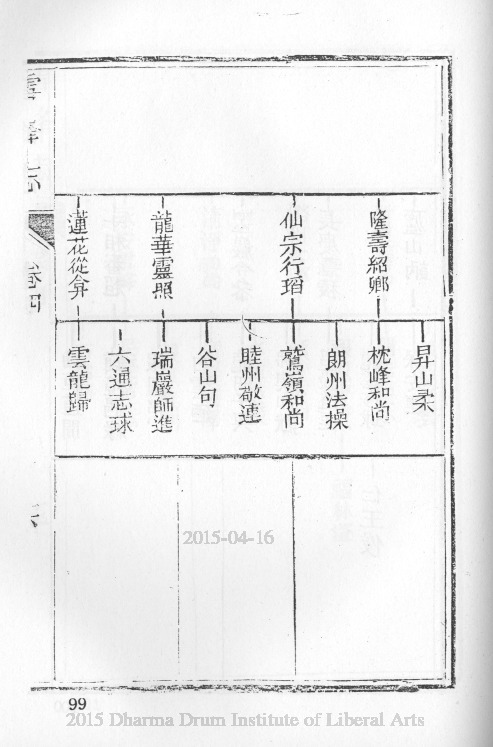 隆壽紹鄉
仙宗行瑫
龍華靈照
蓮花從弇
昇山柔
枕峰和尚
朗州法操
鷲嶺和尚
睦州敬連
谷山句
瑞巖師進
六通志球
雲龍歸
雪峰志
卷四
六
2015-04-16
99
2015 Dharma Drum Institute of Liberal Arts